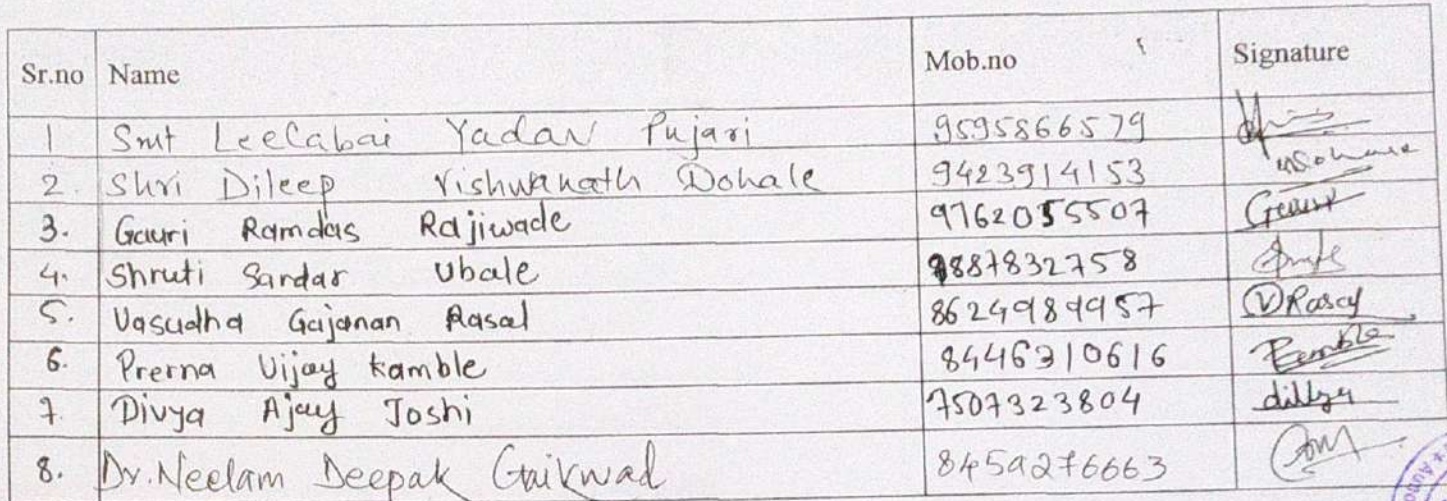 Sr.no Name Mob.no Signature
1 Smt Leelabai Yadav Pujari 9595866579
2. Shri Dileep Vishwanath Dohale 9423914153
3. Gauri Ramdas Rajiwade 9762055507 Gauri
4. Shruti Sardar Ubale 9887832758
5. Vasudha Gajanan Rasal 8624989957 VRasal
6. Prerna Vijay Kamble 8446310616
7. Divya Ajay Joshi 7507323804
8. Dr. Neelam Deepak Gaikwad 8459276663